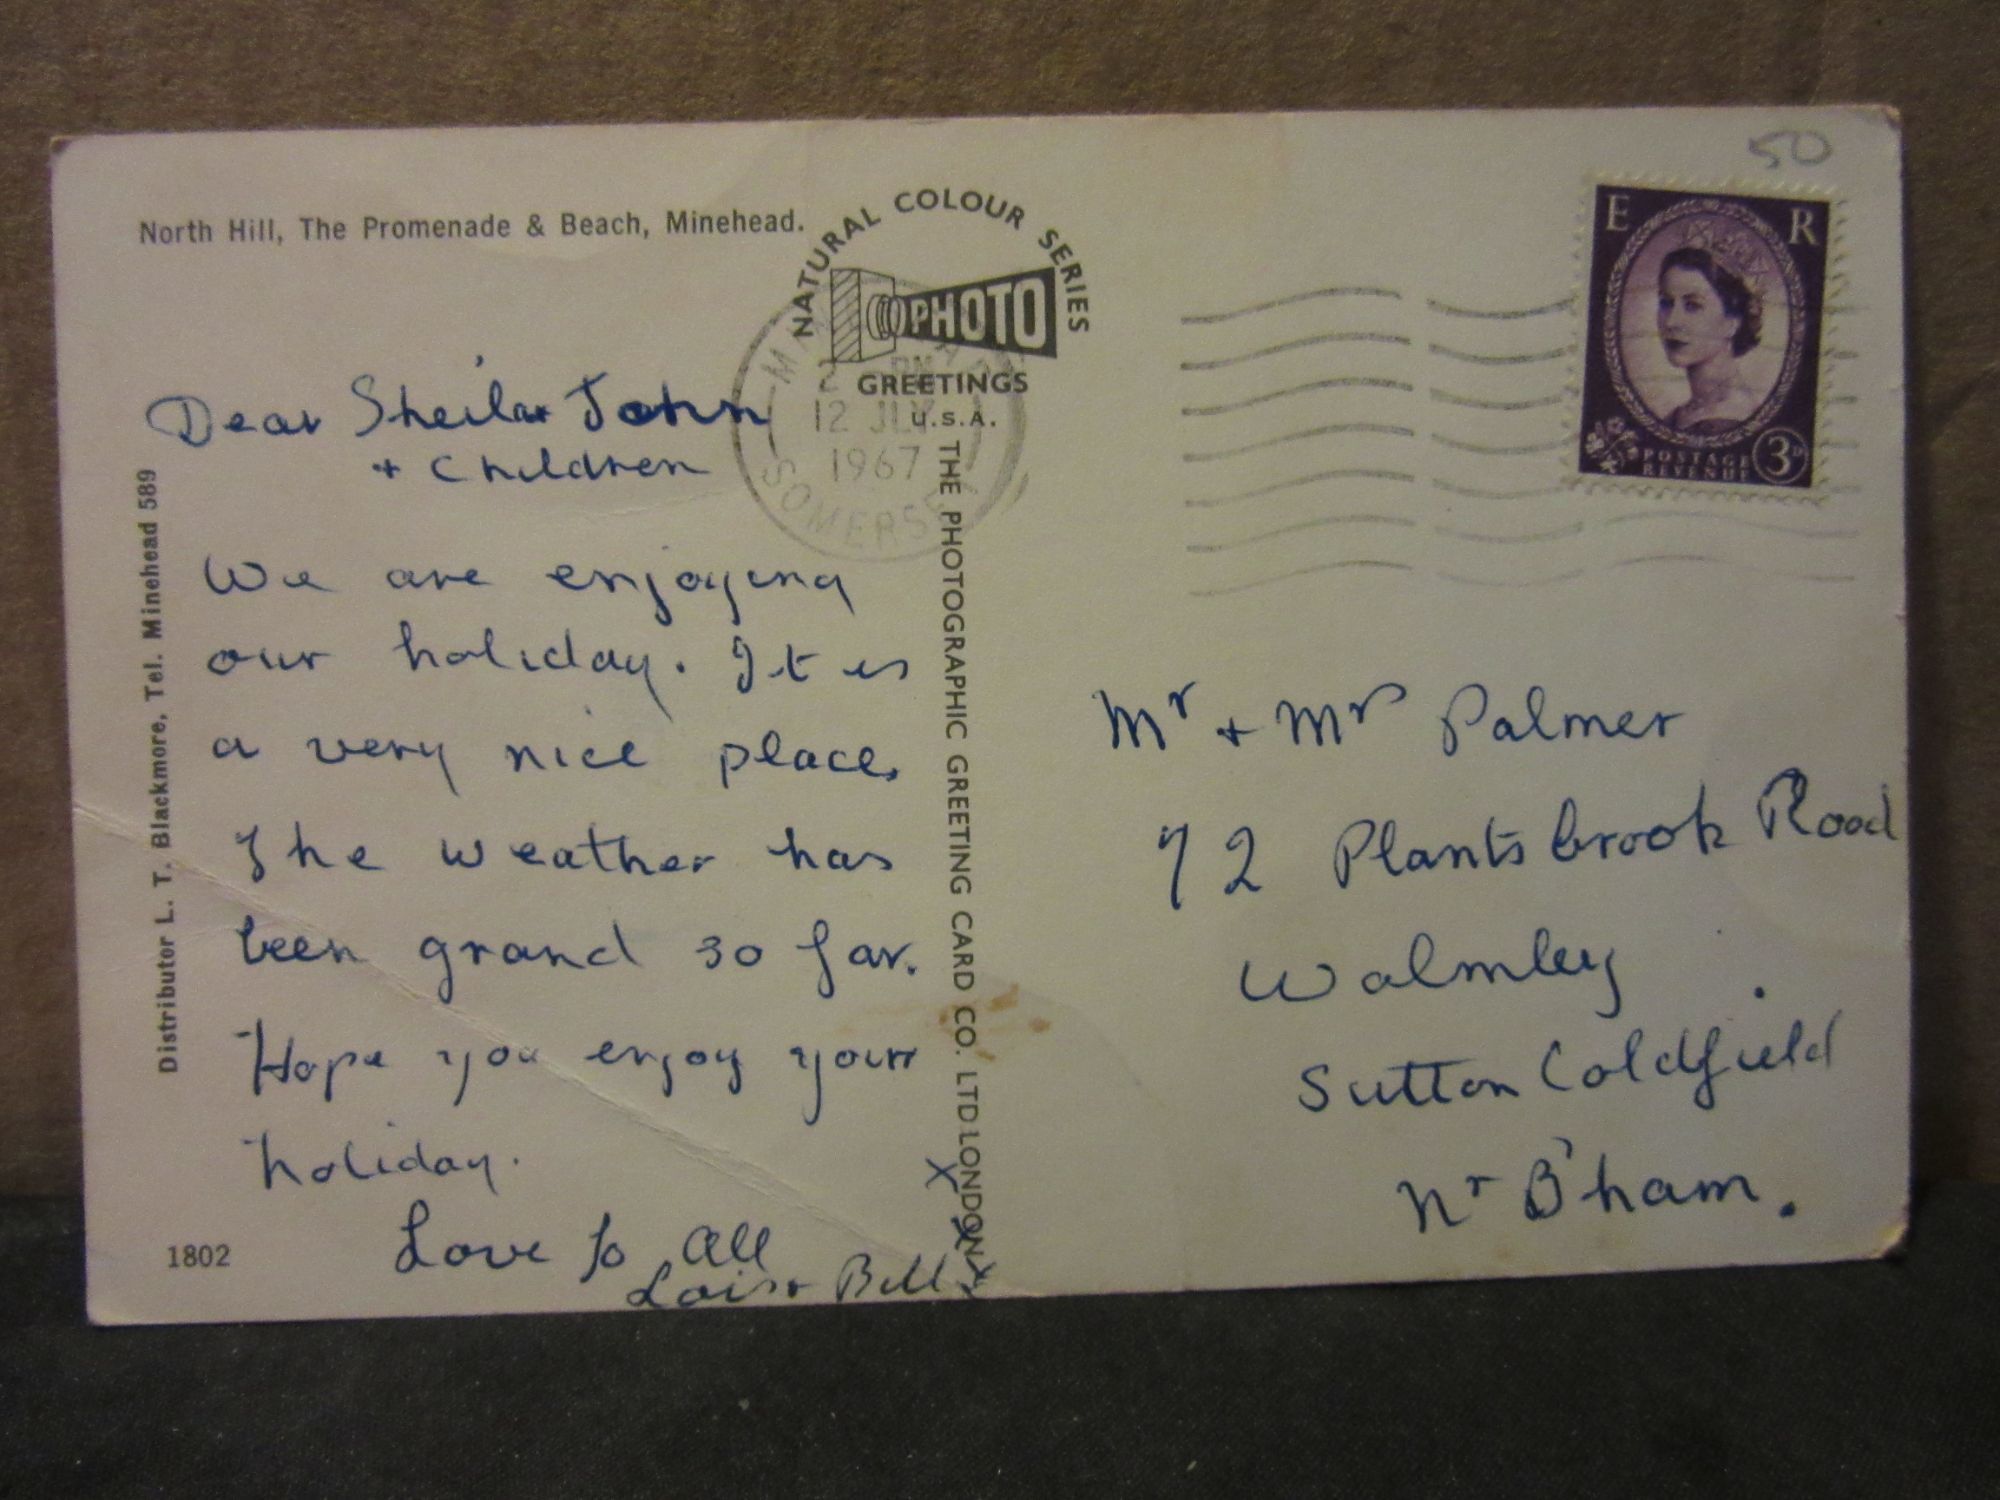 North Hill, The Promenade & Beach, Minehead.
NATURAL COLOUR SERIES
PHOTO
GREETINGS
U.S.A.
12 JLY
1967
SOMERSET
50
E R
POSTAGE
REVENUE
3D
Dear Sheila + John
+ Children
We are enjoying
our holiday. It is
a very nice place.
The weather has
been grand so far.
Hope you enjoy your
holiday.
Love to all
Lois + Bill
x
x
x
Distributor L. T. Blackmore, Tel. Minehead 589
1802
THE PHOTOGRAPHIC GREETING CARD CO. LTD LONDON
Mr + Mrs Palmer
72 Plantsbrook Road
Walmley
Sutton Coldfield
Nr B'ham.